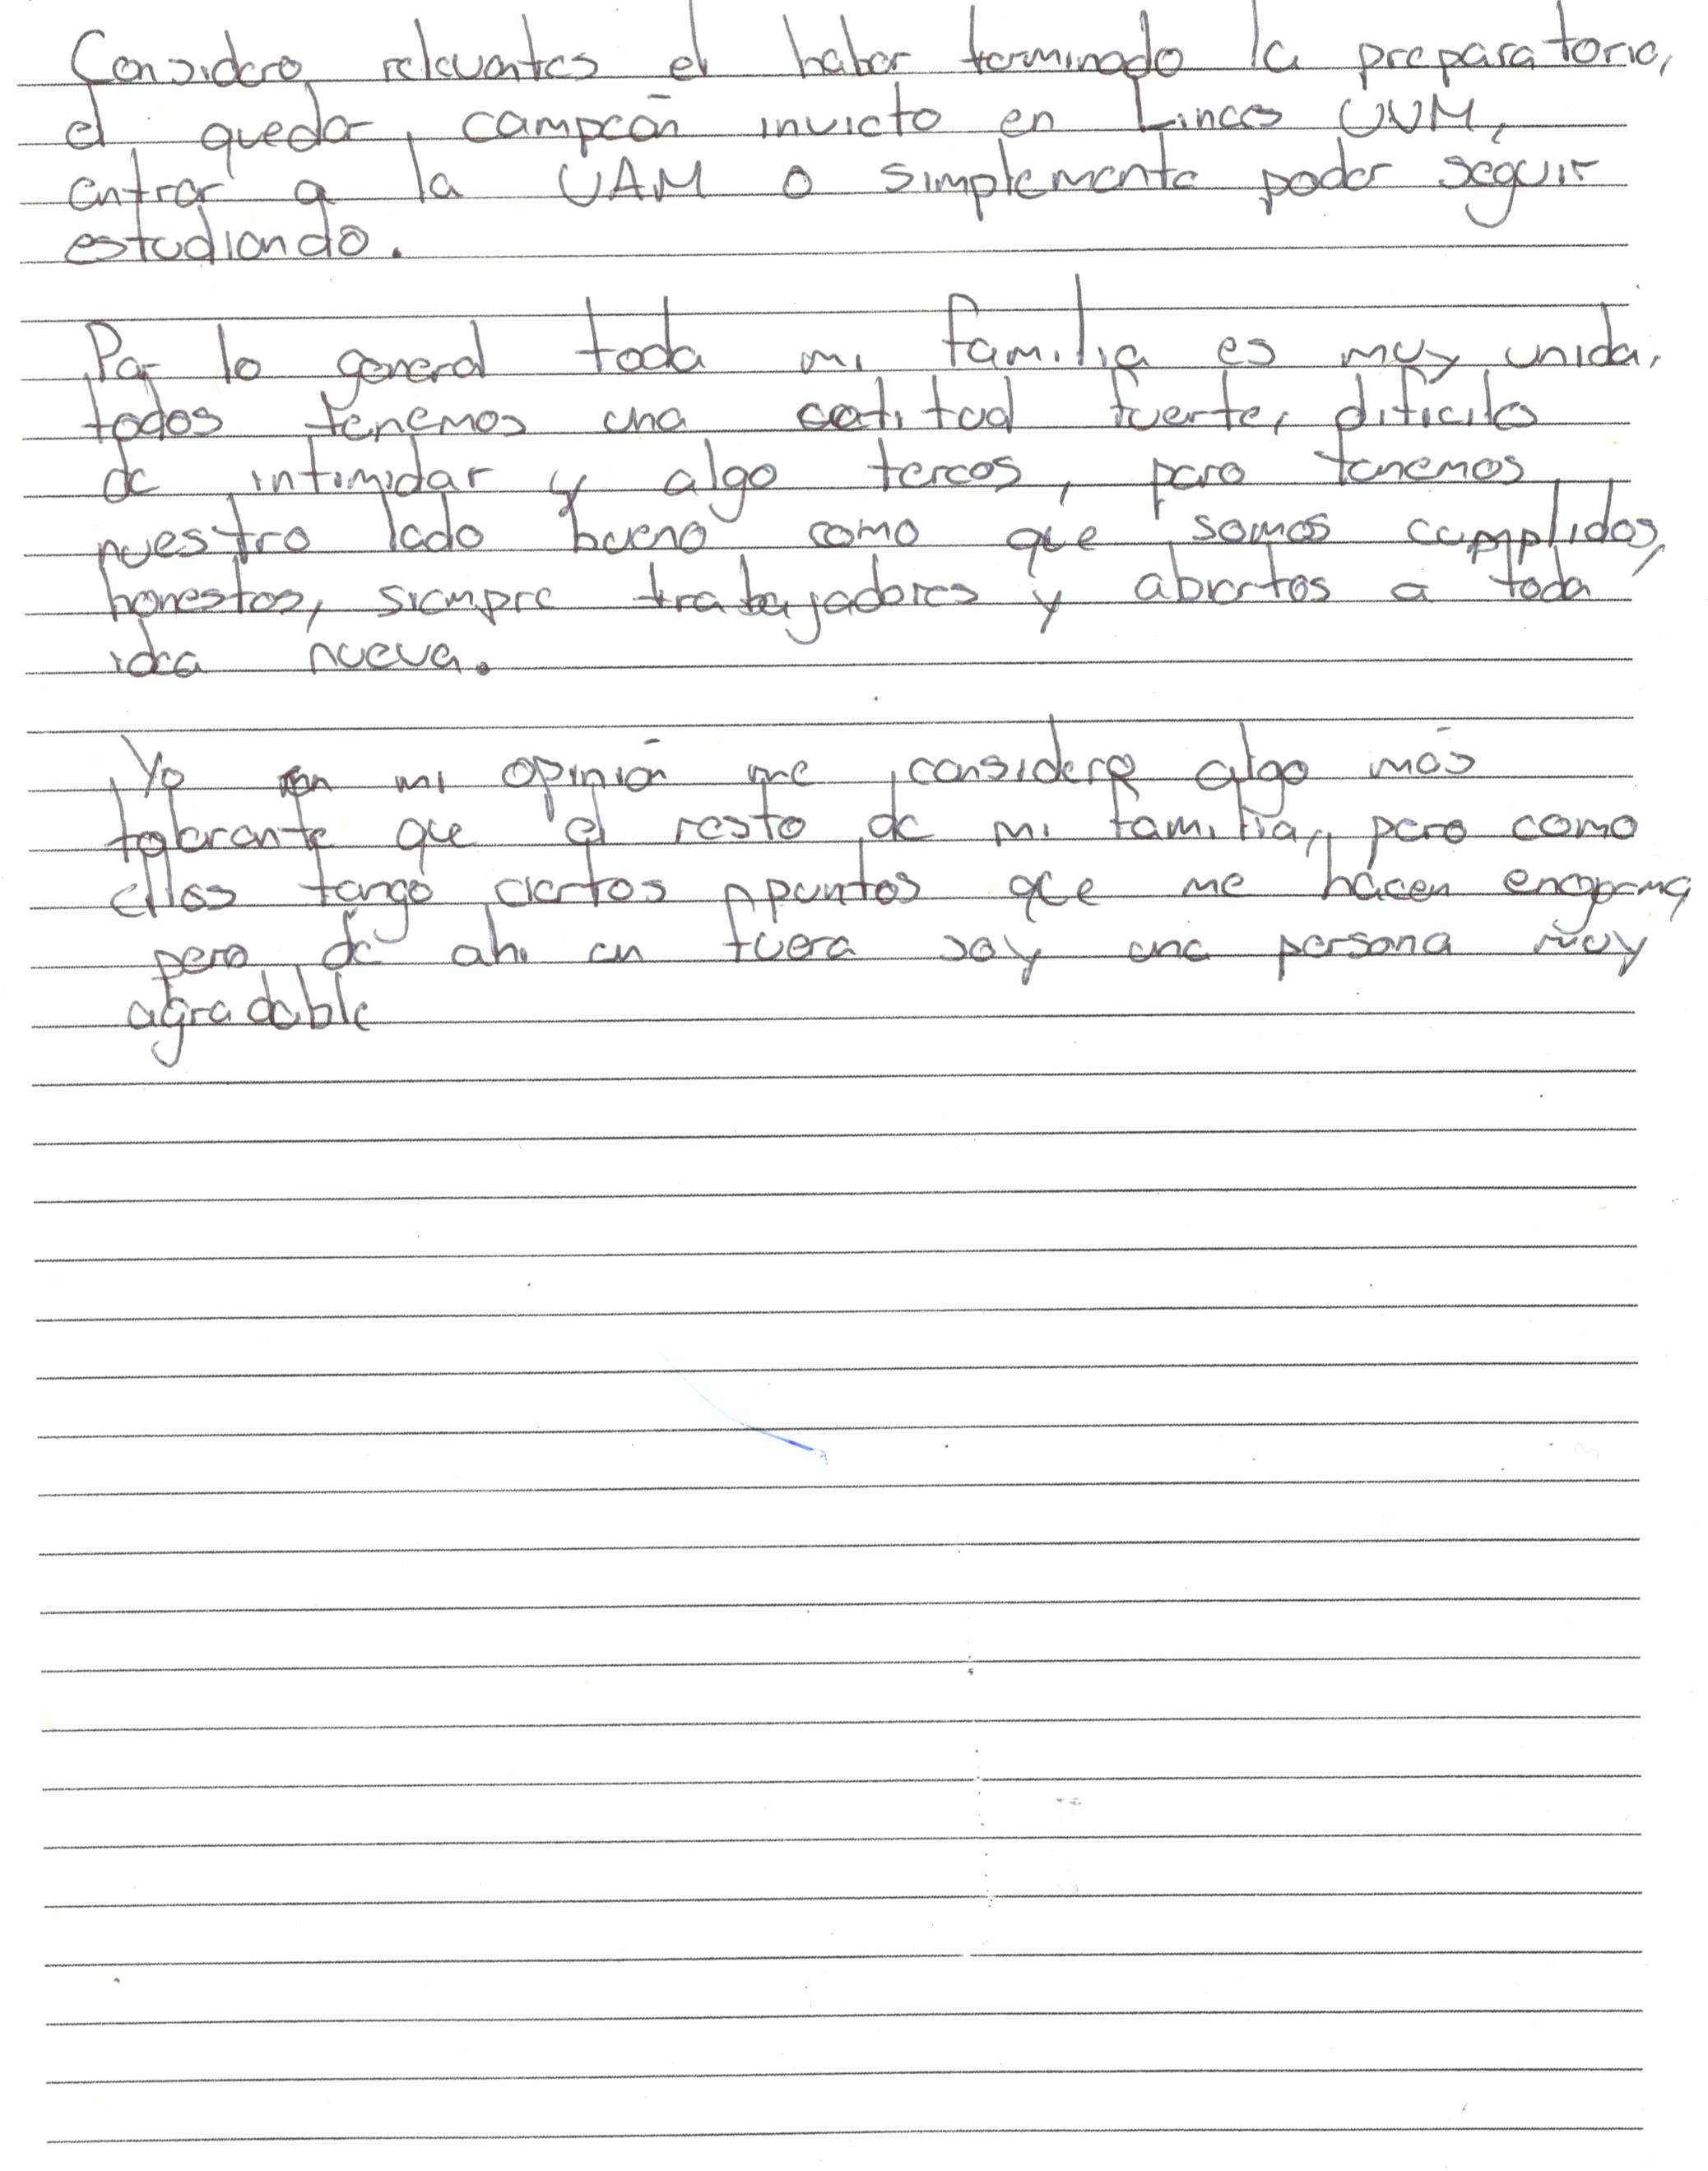 Considero relevantes el haber terminado la preparatoria,
el quedar campeón invicto en Linces UVM,
entrar a la UAM o simplemente poder seguir
estudiando.
Por lo general toda mi familia es muy unida,
todos tenemos una actitud fuerte, dificiles
de intimidar y algo tercos, pero tenemos
nuestro lado bueno como que somos cumplidos,
honestos, siempre trabajadores y abiertos a toda
idea nueva.
Yo en mi opinión me considero algo más
tolerante que el resto de mi familia, pero como
ellos tengo ciertos puntos que me hacen
pero de ahi en fuera soy una persona muy
agradable